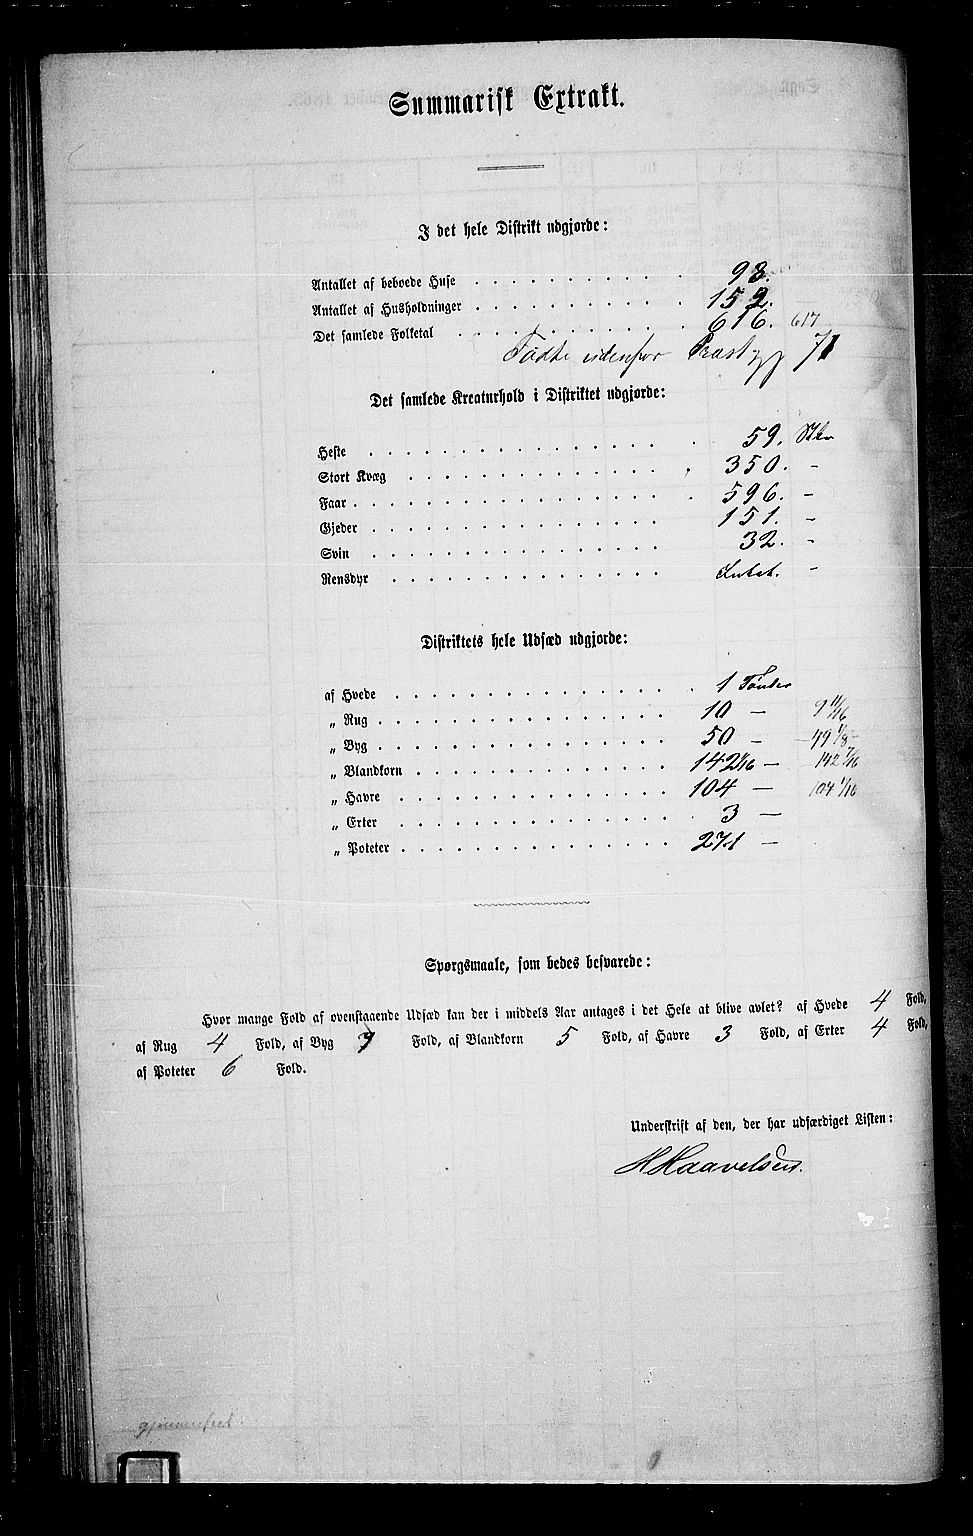 Summarisk Extrakt.
I det hele Distrikt udgjorde:
Antallet af beboede Huse . . . . . . . . . . . 93.
Antallet af Husholdninger . . . . . . . . . . . 152.
Det samlede Folketal . . . . . . . . . . . . 616. 617
Fødte udenfor Præstgj 71
Det samlede Kreaturhold i Distriktet udgjorde:
Heste . . . . . . . . . . . . . 59. Stkr
Stort Kvæg . . . . . . . . . . . . 350. -
Faar . . . . . . . . . . . . . . 596. -
Gjeder . . . . . . . . . . . . . 151. -
Svin . . . . . . . . . . . . . 32. -
Rensdyr . . . . . . . . . . . . Intet. -
Distriktets hele Udsæd udgjorde:
af Hvede . . . . . . . . . . . . 1 Tønder
„ Rug . . . . . . . . . . . . 10 — 9 11/16
„ Byg . . . . . . . . . . . . 50 — 49 1/8
„ Blandkorn . . . . . . . . . . . 142 1/16 — 142 7/16
„ Havre . . . . . . . . . . . . 104 — 104 1/16
„ Erter . . . . . . . . . . . . 3 —
„ Poteter . . . . . . . . . . . . 271 —
Spørgsmaale, som bedes besvarede:
Hvor mange Fold af ovenstaaende Udsæd kan der i middels Aar antages i det Hele at blive avlet? af Hvede 4 Fold,
af Rug 4 Fold, af Byg Fold, af Blandkorn 5 Fold, af Havre 3 Fold, af Erter 4 Fold,
af Poteter 6 Fold.
Underskrift af den, der har udfærdiget Listen:
H Haavelsen.